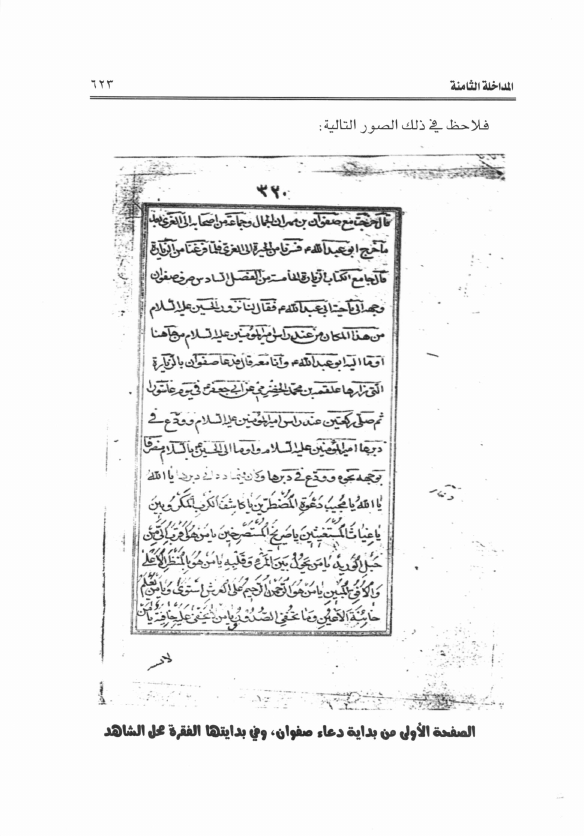 المداخلة الثامنة ٦٢٣
فلاحظ في ذلك الصور التالية:
٣٢٠
قال خرجت مع صفوان بن مهران الجمال وجماعة من اصحابنا الى الغري بعد
ما خرج ابو عبد الله ع فسرنا من الحيرة الى الغري فلما فرغنا من الزيارة
صرف صفوان
وجهه الى ناحية ابي عبد الله ع فقال لنا تزورون الحسين عليه السلام
من هذا المكان من عند راس امير المؤمنين عليه السلام من هاهنا
اوما اليه ابو عبد الله ع وانا معه قال فدعا صفوان بالزيارة
التي زارها علقمة بن محمد الحضرمي عن ابي جعفر ع في يوم عاشورا
ثم صلى ركعتين عند راس امير المؤمنين عليه السلام وودع في
دبرها امير المؤمنين عليه السلام واوما الى الحسين ع بالسلام منصرفا
بوجهه نحوه وودع في دبرها وكان فيما دعا في دبرها يا الله
يا الله يا مجيب دعوة المضطرين يا كاشف كرب المكروبين
يا غياث المستغيثين يا صريخ المستصرخين يا من هو اقرب الي من
حبل الوريد يا من يحول بين المرء وقلبه يا من هو بالمنظر الاعلى
وبالافق المبين يا من هو الرحمن الرحيم على العرش استوى ويا من يعلم
خائنة الاعين وما تخفي الصدور يا من لا يخفى عليه خافية يا من
لا
الصفحة الأولى من بداية دعاء صفوان، وفي بدايتها الفقرة محل الشاهد